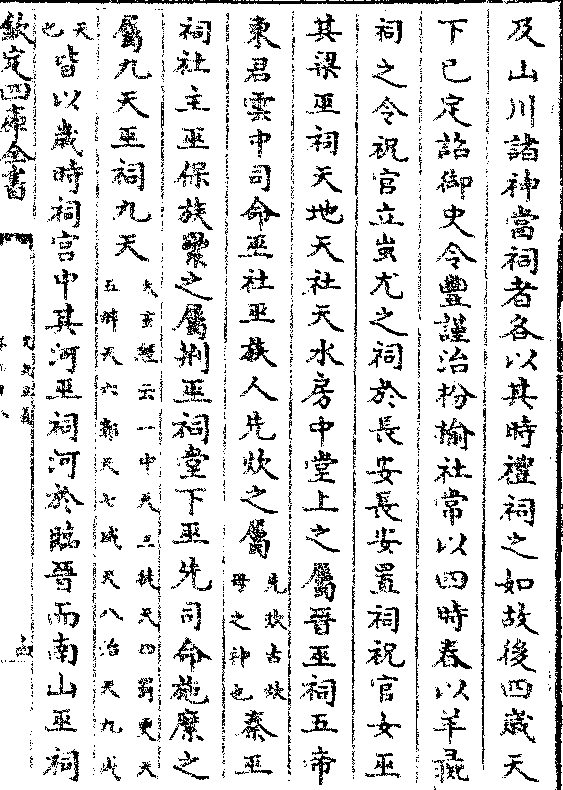 及山川諸神當祠者各以其時禮祠之如故後四歲天
下已定詔御史令豐謹治枌榆社常以四時春以羊彘
祠之令祝官立蚩尤之祠於長安長安置祠祝官女巫
其梁巫祠天地天社天水房中堂上之屬晉巫祠五帝
東君雲中司命巫社巫族人先炊之屬先炊古炊母之神也秦巫
祠社主巫保族纍之屬荆巫祠堂下巫先司命施糜之
屬九天巫祠九天太玄經云一中天三徒天四罰更天五睟天六廓天七咸天八治天九成
天也皆以歲時祠宮中其河巫祠河於臨晉而南山巫祠
欽定四庫全書